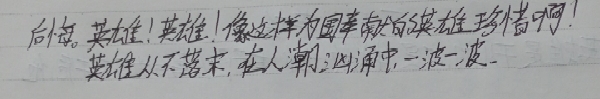 后悔。英雄！英雄！像这样为国奉献的英雄珍惜啊！
英雄从不落末，在人潮汹涌中，一波一波